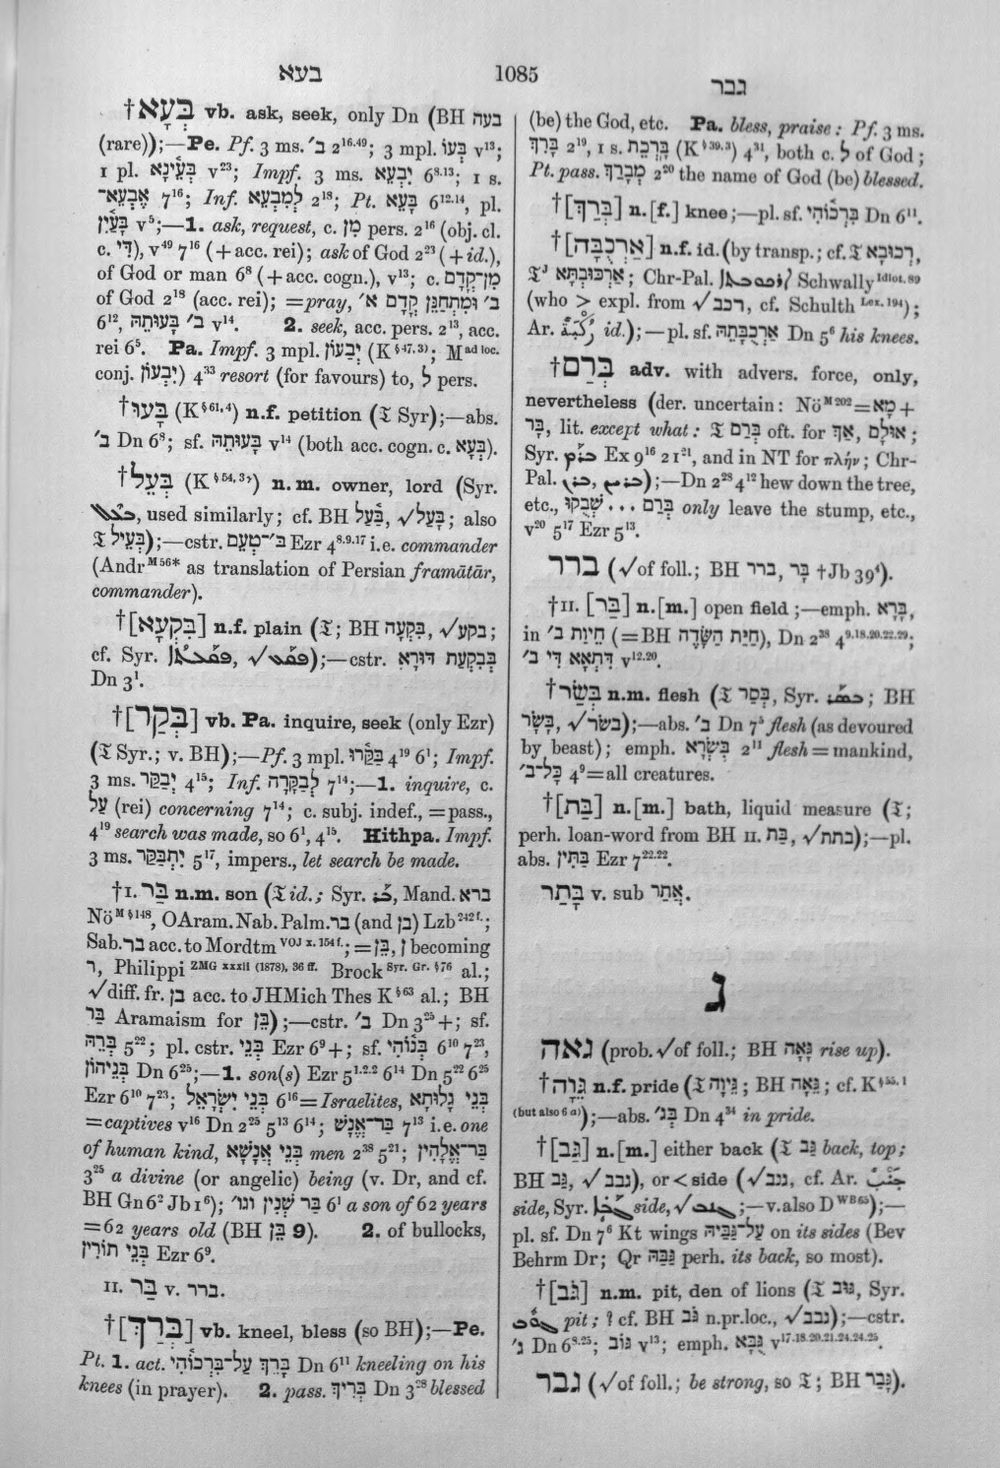 בעא
1085
גבר
†בְּעָא vb. ask, seek, only Dn (BH בעה
(rare));—Pe. Pf. 3 ms. ב׳ 2¹⁶·⁴⁹; 3 mpl. בְּעוֹ v¹³;
1 pl. בְּעֵינָא v²³; Impf. 3 ms. יִבְעֵא 6⁸·¹³; 1 s.
אֶבְעֵא־ 7¹⁶; Inf. לְמִבְעֵא 2¹⁸; Pt. בָּעֵא 6¹²·¹⁴, pl.
בָּעַיִן v⁵;—1. ask, request, c. מִן pers. 2¹⁶ (obj. cl.
c. דִּי), v⁴⁹ 7¹⁶ (+acc. rei); ask of God 2²³ (+id.),
of God or man 6⁸ (+acc. cogn.), v¹³; c. מִן־קֳדָם
of God 2¹⁸ (acc. rei); =pray, ב׳ וּמִתְחַנַּן קֳדָם א׳
6¹², בָּעוּתֵהּ ב׳ v¹⁴. 2. seek, acc. pers. 2¹³, acc.
rei 6⁵. Pa. Impf. 3 mpl. יְבַעוֹן (K§⁴⁷·³⁾; M ad loc.
conj. יִבְעוֹן) 4³³ resort (for favours) to, לְ pers.
†בָּעוּ (K§⁶¹·⁴) n.f. petition (𝔗 Syr);—abs.
ב׳ Dn 6⁸; sf. בָּעוּתֵהּ v¹⁴ (both acc. cogn. c. בְּעָא).
†בְּעֵל (K§⁵⁴·³ᵞ) n.m. owner, lord (Syr.
used similarly; cf. BH בַּעַל, √בָּעַל; also
𝔗 בְּעֵיל);—cstr. ב׳־טְעֵם Ezr 4⁸·⁹·¹⁷ i.e. commander
(Andr M⁵⁶* as translation of Persian framātār,
commander).
†[בִּקְעָא] n.f. plain (𝔗; BH בִּקְעָה, √בקע;
cf. Syr. );—cstr. בְּבִקְעַת דּוּרָא
Dn 3¹.
†[בְּקַר] vb. Pa. inquire, seek (only Ezr)
(𝔗 Syr.; v. BH);—Pf. 3 mpl. בַּקַּרוּ 4¹⁹ 6¹; Impf.
3 ms. יְבַקַּר 4¹⁵; Inf. לְבַקָּרָה 7¹⁴;—1. inquire, c.
עַל (rei) concerning 7¹⁴; c. subj. indef., =pass.,
4¹⁹ search was made, so 6¹, 4¹⁵. Hithpa. Impf.
3 ms. יִתְבַּקַּר 5¹⁷, impers., let search be made.
†I. בַּר n.m. son (𝔗 id.; Syr. , Mand. ברא
Nö M§¹⁴⁸, OAram. Nab. Palm. בר (and בן) Lzb²⁴²ᶠ·;
Sab. בר acc. to Mordtm VOJ x. 154 f.; =בֵּן, ן becoming
ר, Philippi ZMG xxxii (1878), 36 ff. Brock Syr. Gr. §76 al.;
√diff. fr. בן acc. to JHMich Thes K§⁶³ al.; BH
בַּר Aramaism for בֵּן);—cstr. ב׳ Dn 3²⁵+; sf.
בְּרֵהּ 5²²; pl. cstr. בְּנֵי Ezr 6⁹+; sf. בְּנוֹהִי 6¹⁰ 7²³,
בְּנֵיהוֹן Dn 6²⁵;—1. son(s) Ezr 5¹·²·² 6¹⁴ Dn 5²² 6²⁵
Ezr 6¹⁰ 7²³; בְּנֵי יִשְׂרָאֵל 6¹⁶=Israelites, בְּנֵי גָלוּתָא
=captives v¹⁶ Dn 2²⁵ 5¹³ 6¹⁴; בַּר־אֱנָשׁ 7¹³ i.e. one
of human kind, בְּנֵי אֲנָשָׁא men 2³⁸ 5²¹; בַּר־אֱלָהִין
3²⁵ a divine (or angelic) being (v. Dr, and cf.
BH Gn 6² Jb 1⁶); בַּר שְׁנִין וגו׳ 6¹ a son of 62 years
=62 years old (BH בֵּן 9). 2. of bullocks,
בְּנֵי תוֹרִין Ezr 6⁹.
II. בַּר v. ברר.
†[בְּרַךְ] vb. kneel, bless (so BH);—Pe.
Pt. 1. act. בָּרֵךְ עַל־בִּרְכוֹהִי Dn 6¹¹ kneeling on his
knees (in prayer). 2. pass. בְּרִיךְ Dn 3²⁸ blessed
(be) the God, etc. Pa. bless, praise: Pf. 3 ms.
בָּרִךְ 2¹⁹, 1 s. בָּרְכֵת (K§³⁹·³) 4³¹, both c. לְ of God;
Pt. pass. מְבָרַךְ 2²⁰ the name of God (be) blessed.
†[בְּרַךְ] n.[f.] knee;—pl. sf. בִּרְכוֹהִי Dn 6¹¹.
†[אַרְכֻבָּה] n.f. id. (by transp.; cf. 𝔗 רְכוּבָא,
𝔗ᴶ אַרְכּוּבְתָּא; Chr-Pal. Schwally Idiot. 89
(who > expl. from √רכב, cf. Schulth Lex. 194);
Ar. id.);—pl. sf. אַרְכֻבָּתֵהּ Dn 5⁶ his knees.
†בְּרַם adv. with advers. force, only,
nevertheless (der. uncertain: Nö M²⁰²=מָא+
בָּר, lit. except what: 𝔗 בְּרַם oft. for אַךְ, אוּלָם;
Syr. Ex 9¹⁶ 21²¹, and in NT for πλήν; Chr-
Pal. );—Dn 2²⁸ 4¹² hew down the tree,
etc., בְּרַם ... שְׁבֻקוּ only leave the stump, etc.,
v²⁰ 5¹⁷ Ezr 5¹³.
ברר (√of foll.; BH ברר, בָּר †Jb 39⁴).
†II. [בַּר] n.[m.] open field;—emph. בָּרָא,
in חֵיוַת ב׳ (=BH חַיַּת הַשָּׂדֶה), Dn 2³⁸ 4⁹·¹⁸·²⁰·²²·²⁹;
דִּתְאָא דִּי ב׳ v¹²·²⁰.
†בְּשַׂר n.m. flesh (𝔗 בְּסַר, Syr. ; BH
בָּשָׂר, √בשׂר);—abs. ב׳ Dn 7⁵ flesh (as devoured
by beast); emph. בִּשְׂרָא 2¹¹ flesh=mankind,
כָּל־ב׳ 4⁹=all creatures.
†[בַּת] n.[m.] bath, liquid measure (𝔗;
perh. loan-word from BH II. בַּת, √בתת);—pl.
abs. בַּתִּין Ezr 7²²·²².
בָּתַר v. sub אֲתַר.
ג
גאה (prob. √of foll.; BH גָּאָה rise up).
†גֵּוָה n.f. pride (𝔗 גֵּיוָה; BH גֵּאָה; cf. K§⁵⁵·¹
(but also 6 a));—abs. בְּג׳ Dn 4³⁴ in pride.
†[גַּב] n.[m.] either back (𝔗 גַּב back, top;
BH גַּב, √גבב), or < side (√גנב, cf. Ar.
side, Syr. side, √ ;—v. also D WB 65);—
pl. sf. Dn 7⁶ Kt wings עַל־גַּבַּיַהּ on its sides (Bev
Behrm Dr; Qr גַּבַּהּ perh. its back, so most).
†[גֹּב] n.m. pit, den of lions (𝔗 גּוֹב, Syr.
pit; ? cf. BH גֹּב n.pr.loc., √גבב);—cstr.
ג׳ Dn 6⁸·²⁵; גּוֹב v¹³; emph. גֻּבָּא v¹⁷·¹⁸·²⁰·²¹·²⁴·²⁴·²⁵.
גבר (√of foll.; be strong, so 𝔗; BH גָּבַר).